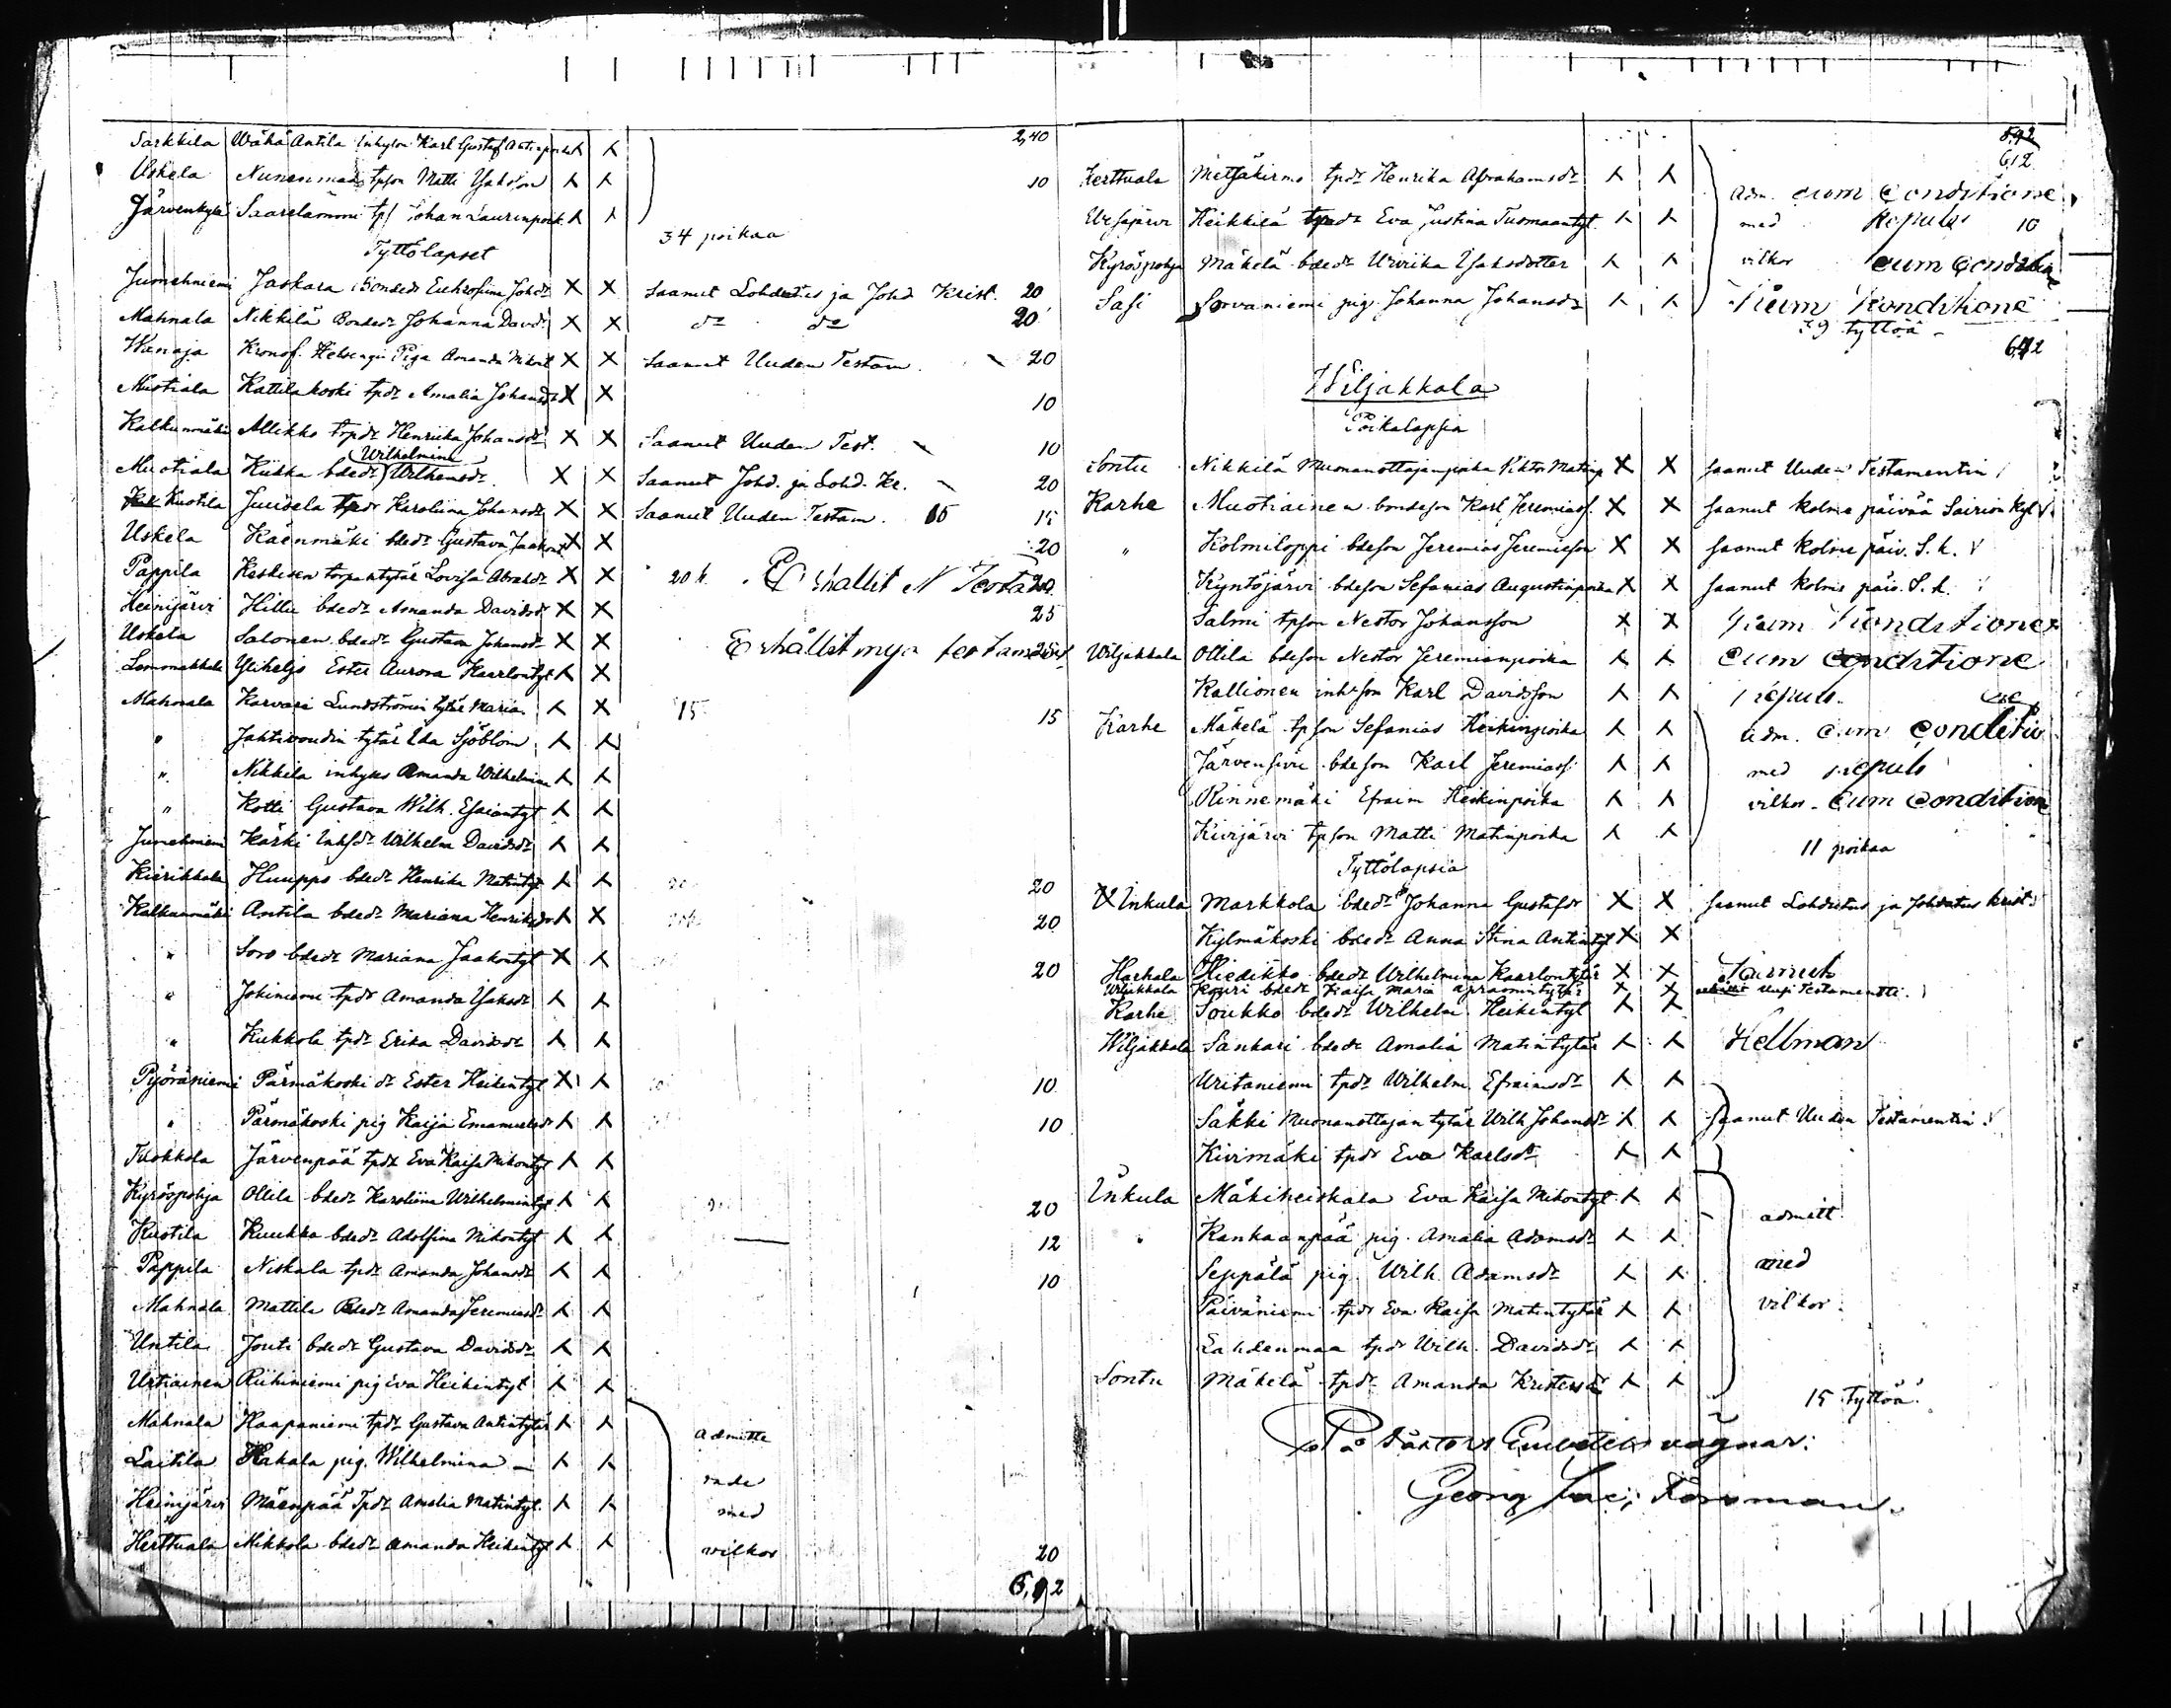 2,40
Sarkkila Wähä Antila Inhyson Karl Gustaf Antinpoika
Uskela Nunenmaa tpson Matti Isaksson 10
Järvenkylä Saarelammi tp Johan Laurinpoik.
34 poikaa
Tyttölapset
Jumehniemi Jaskara Bondedr Euhrosina Johdr X X Saanut Lohdutus ja Johd. Krist. 20
Mahnala Nikkilä Bondedr Johanna David. X X do do 20
Hanaja Kronof. Helsingin Piga Amanda X X Saanut Uuden Testam. 20
Mustiala Kattilakoski tpdr Amalia Johansdr X X 10
Kalkunmäki Allikko tpdr Henrika Johansdr X X Saanut Uuden Test. 10
Wilhelmina
Muotiala Kukka bdedr Wilhemsdr. X X Saanut Johd. ja Lohd. Kr. 20
Kuotila Juusela tpdr Karolina Johansdr X X Saanut Uuden Testam. 15 15
Uskela Käenmäki bdedr Gustava Jaakont X X 20
Pappila Keskisen torparintytär Lovisa Abrahdr X X 20 k. Erhallit N Testa 20
Heinijärvi Hillu bdedr Amanda Davidsdr X X 25
Uskela Salonen bdedr Gustava Johansdr X X Erhållit nya testament 25
Lemmakkala Yliheljo Ester Aurora Kaarlontyt X
Mahnala Karvari Lundströmin tytär Maria X 15 15
" Jahtivoudin tytär Ida Sjöblom
" Nikkila inhyses Amanda Wilhelmina
" Kotti Gustava Wilh. Esaiantyt
Jumehniemi Kärki Inhsdr Wilhelm Davidsdr
Kierikkala Huuppo bdedr Henrika Matintyt 20
Kalkunmäki Antila bdedr Mariana Henriksdr X 20
" Soro bdedr Mariana Jaakontyt X 20
" Jokiniemi tpdr Amanda Isaksdr
" Kukkola tpdr Erika Davidsdr
Pyöräniemi Pärmäkoski dr Ester Heikintyt X 10
" Pärmäkoski pig Kaija Emanuelsdr 10
Tuokkola Järvenpää tpdr Eva Kaisa Mikontyt
Kyröspohja Ollila bdedr Karolina Wilhelmintyt 20
Kuotila Kuukka bdedr Adolfina Mikontyt 12
Pappila Niskala tpdr Amanda Johansdr 10
Mahnala Mattila Bdedr Amanda Jeremiasdr
Untila Jouti bdedr Gustava Davidsdr
Urtiainen Riihiniemi pig Eva Heikintyt
Mahnala Haapaniemi tpdr Gustava Antintytär admitte
Laitila Hakala pig. Wilhelmina — rade
Heinijärvi Mäenpää Tpdr Amalia Matintyt. med
Herttuala Mikkola bdedr Amanda Heikintyt vilkor 20
6,12
612
Herttuala Metsäkirmo tpdr Henrika Abrahamsdr adm. cum Conditione
Wesajärvi Heikkilä tpdr Eva Justina Tuomaantyt med Repuls 10
Kyröspohja Mäkelä bdedr Ulriika Isaksdotter vilkor cum Conditione
Sasi Sorvaniemi pig. Johanna Johansdr Kum Konditione
39 tyttöä
612
Wiljakkala
Poikalapsia
Sontu Nikkilä Muonanottajanpoika Viktor Matinp X X saanut Uuden Testamentin
Karhe Muotiainen bondeson Karl Jeremiass. X X saanut kolme päivää Sairion Kyl
" Kolmiloppi bdeson Jeremias Jeremieson X X saanut kolme päiv. S. k.
Kyntöjärvi bdeson Sefanias Augustinpoika X X saanut kolme päiv. S. k.
Salmi tpson Nestor Johansson X X Kum Konditione
Wiljakkala Ollila bdeson Nestor Jeremianpoika Cum Conditione
Kallionen inhson Karl Davidsson repuls.
Karhe Mäkelä tpson Sefanias Heikinpoika adm. cum Conditio
ne
Järvensivu bdeson Karl Jeremiass med repuls
Rinnemäki Efraim Heikinpoika vilkor. Cum Condition
Kivijärvi tpson Matti Matinpoika
11 poikaa
Tyttölapsia
Inkula Markkola bdedr Johanna Gustafdr X X saanut Lohdutus ja Johdatus krist.
Kylmäkoski bdedr Anna Stina Antintyt X X
Harhala Hiedikko bdedr Wilhelmina Kaarlontytär X X Saanut
Wiljakkala Kouri bdedr Kaisa Maria Apramintytär X X Uusi Testamentti.
Karhe Soukko bdedr Wilhelm. Heikintyt
Wiljakkala Sankari bdedr Amalia Matintytär Hellman
Uritaniemi tpdr Wilhelm. Efraimsdr
Säkki Muonanottajan tytär Wilh Johansdr saanut Uuden Testamentin
Kivimäki tpdr Eva Karlsdr
Inkula Mäkiheiskala Eva Kaisa Mikontyt admitt.
" Kankaanpää pig. Amalia Adamsdr
Seppälä pig. Wilh. Adamsdr med
Päiväniemi tpdr Eva Kaisa Matintytär vilkor.
Lahdenmaa tpdr Wilh. Davidsdr
Sontu Mäkelä tpdr Amanda Kristersdr
15 tyttöä.
På Pastors Embetets vägnar:
Georg Jac: Forsman.